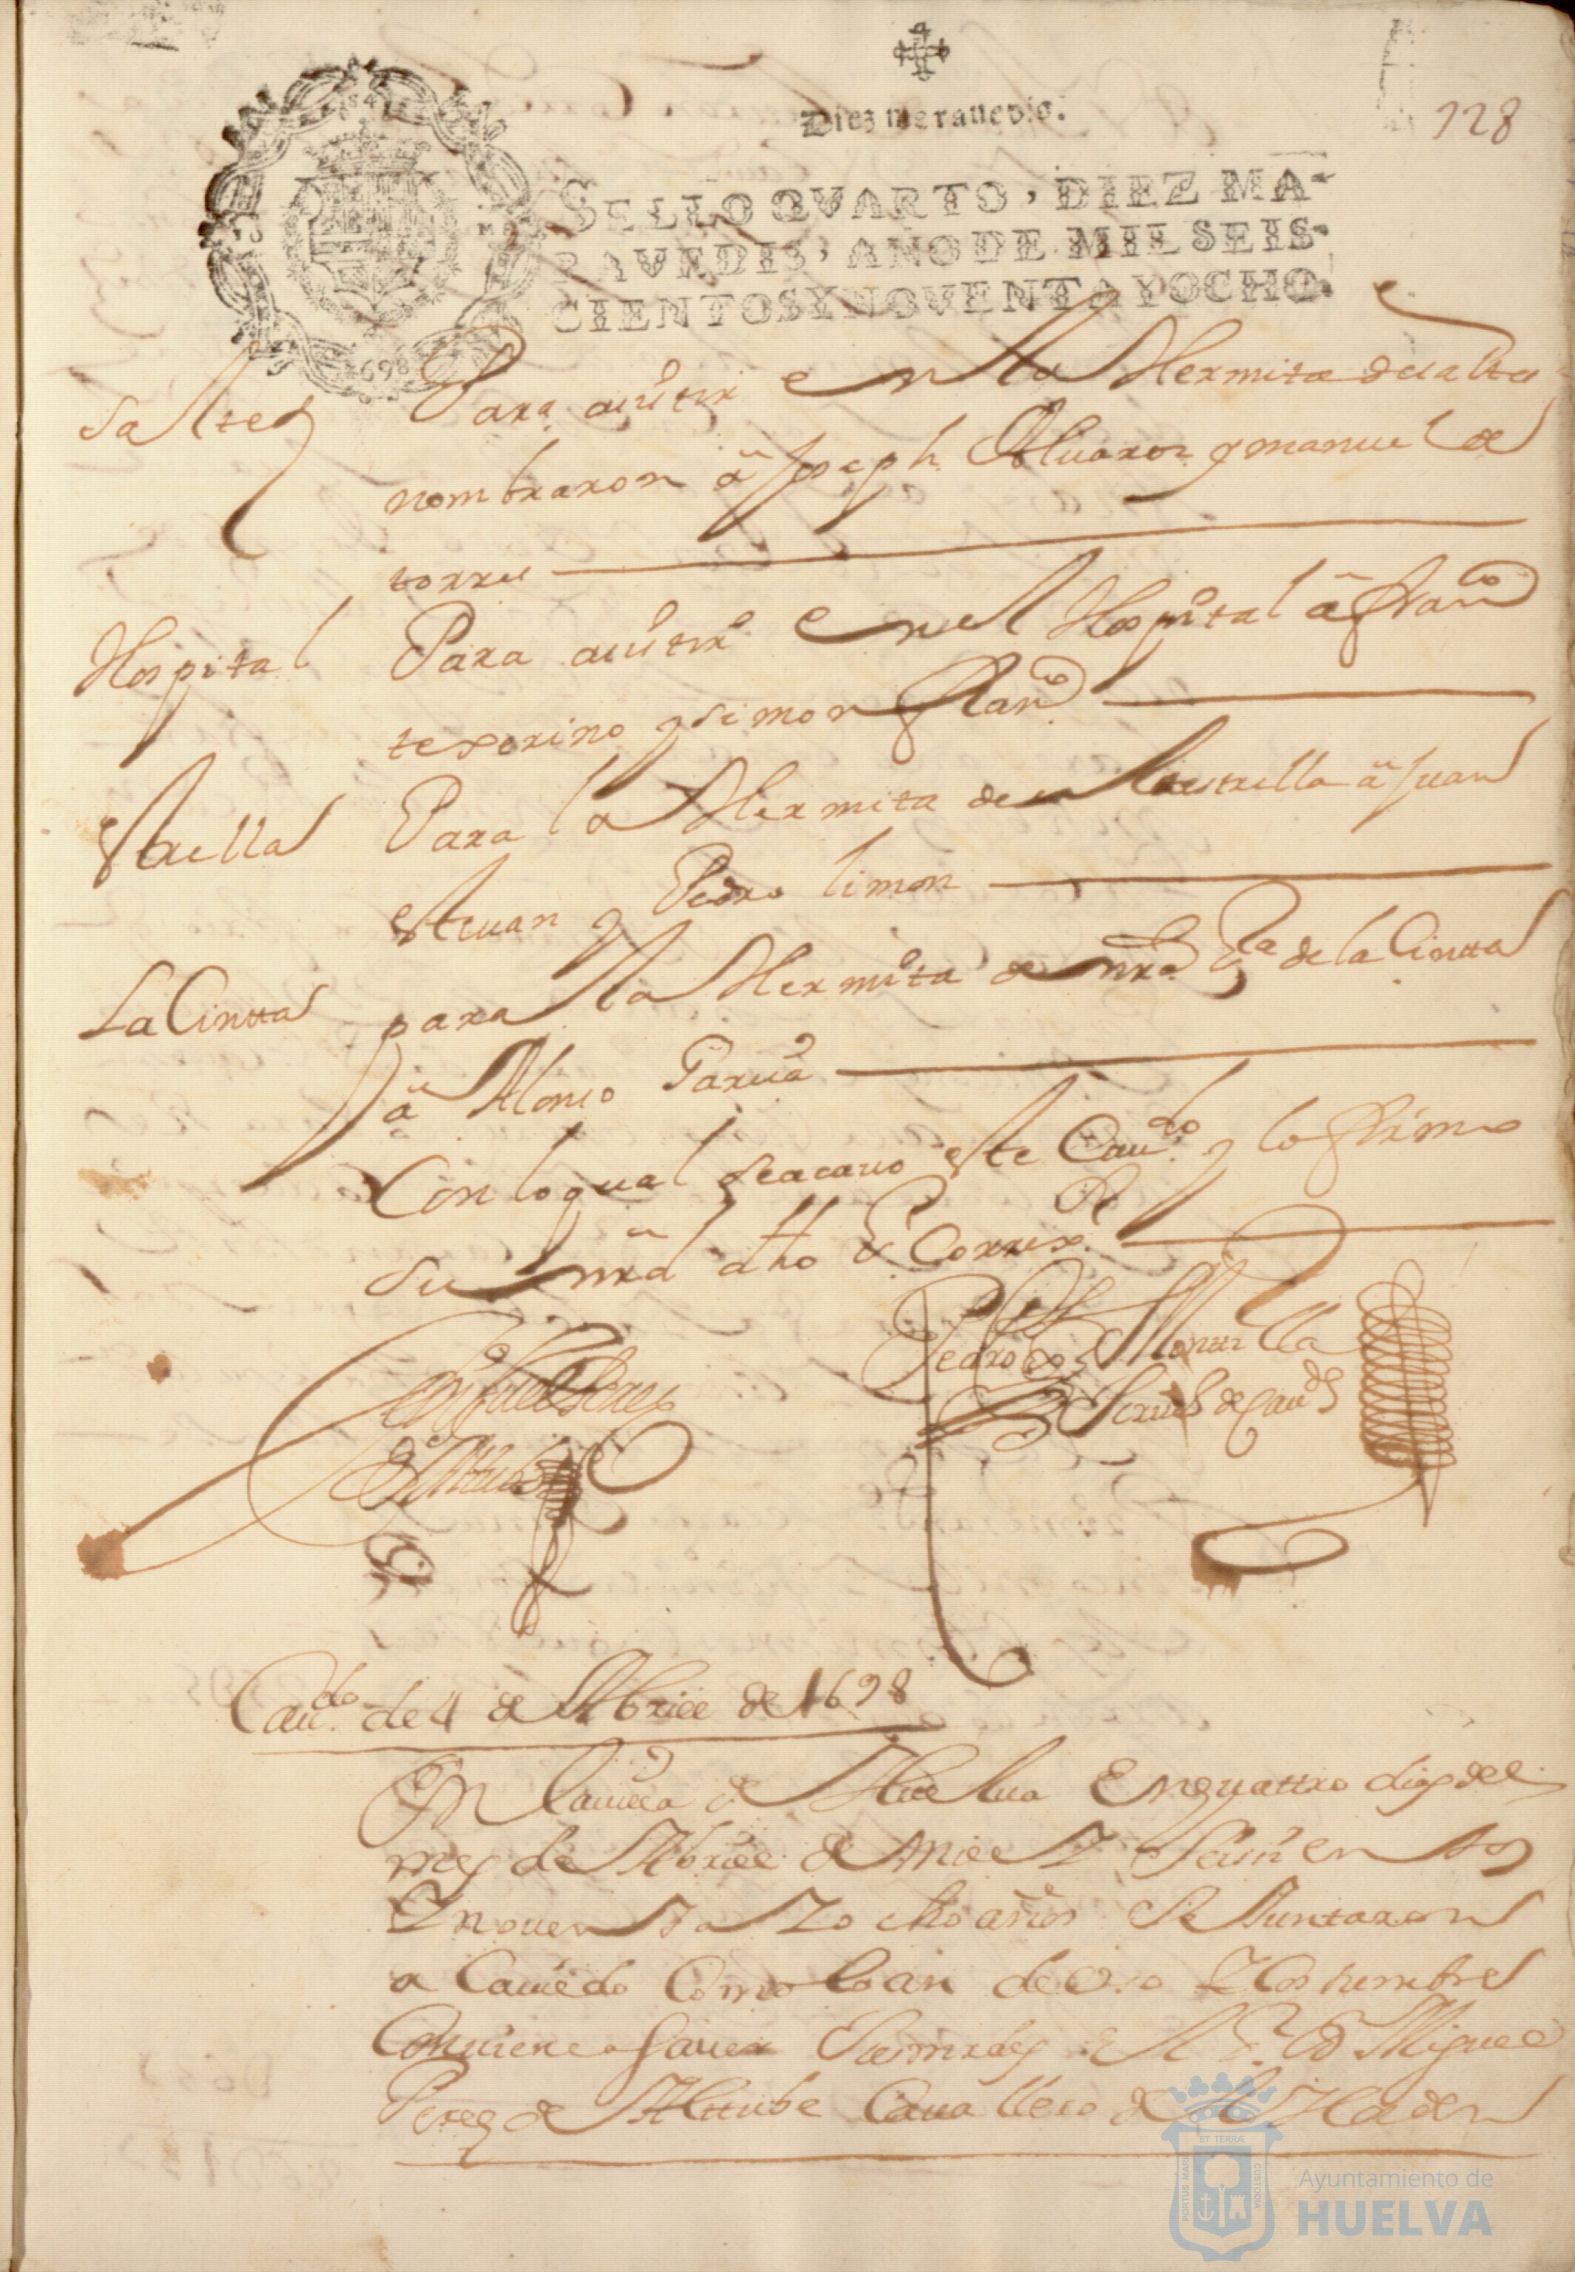 Diez maravedis.
128
SELLO QVARTO, DIEZ MA-
RAVEDIS, AÑO DE MIL SEIS-
CIENTOS Y NOVENTA Y OCHO.
1698
Saltes
Para acistir en la Hermita de saltes
nombraron a Joseph Aluarez y manuel de
torres
Hospital
Para acistir en el Hospital a Franco
texerino y simon Franco
estrella
Para la Hermita de la estrella a Juan
esteuan y Pedro limon
La Cintta
para la Hermita de nra Sa de la Cintta
a Alonso Garcia
Con lo qual se acauo este Caudo y lo firmo
su mrd dho Sr Correxor
Miguel Perez
de Attube
Pedro de Monttilla
Scriuo de Caudo
Caudo de 4 de Abril de 1698
En la uilla de Huelua En quattro dias del
mes de Abril de Mil Y Seiscientos
Y nouenta Y ocho años Se Juntaron
a Cauildo Como lo an de Uso Y Costumbre
Conuiene a sauer Sus mrdes El Sr Dn Miguel
Perez de Attube Cauallero de la Horden
PORTUS MARIS ET TERRÆ CUSTODIA
Ayuntamiento de
HUELVA